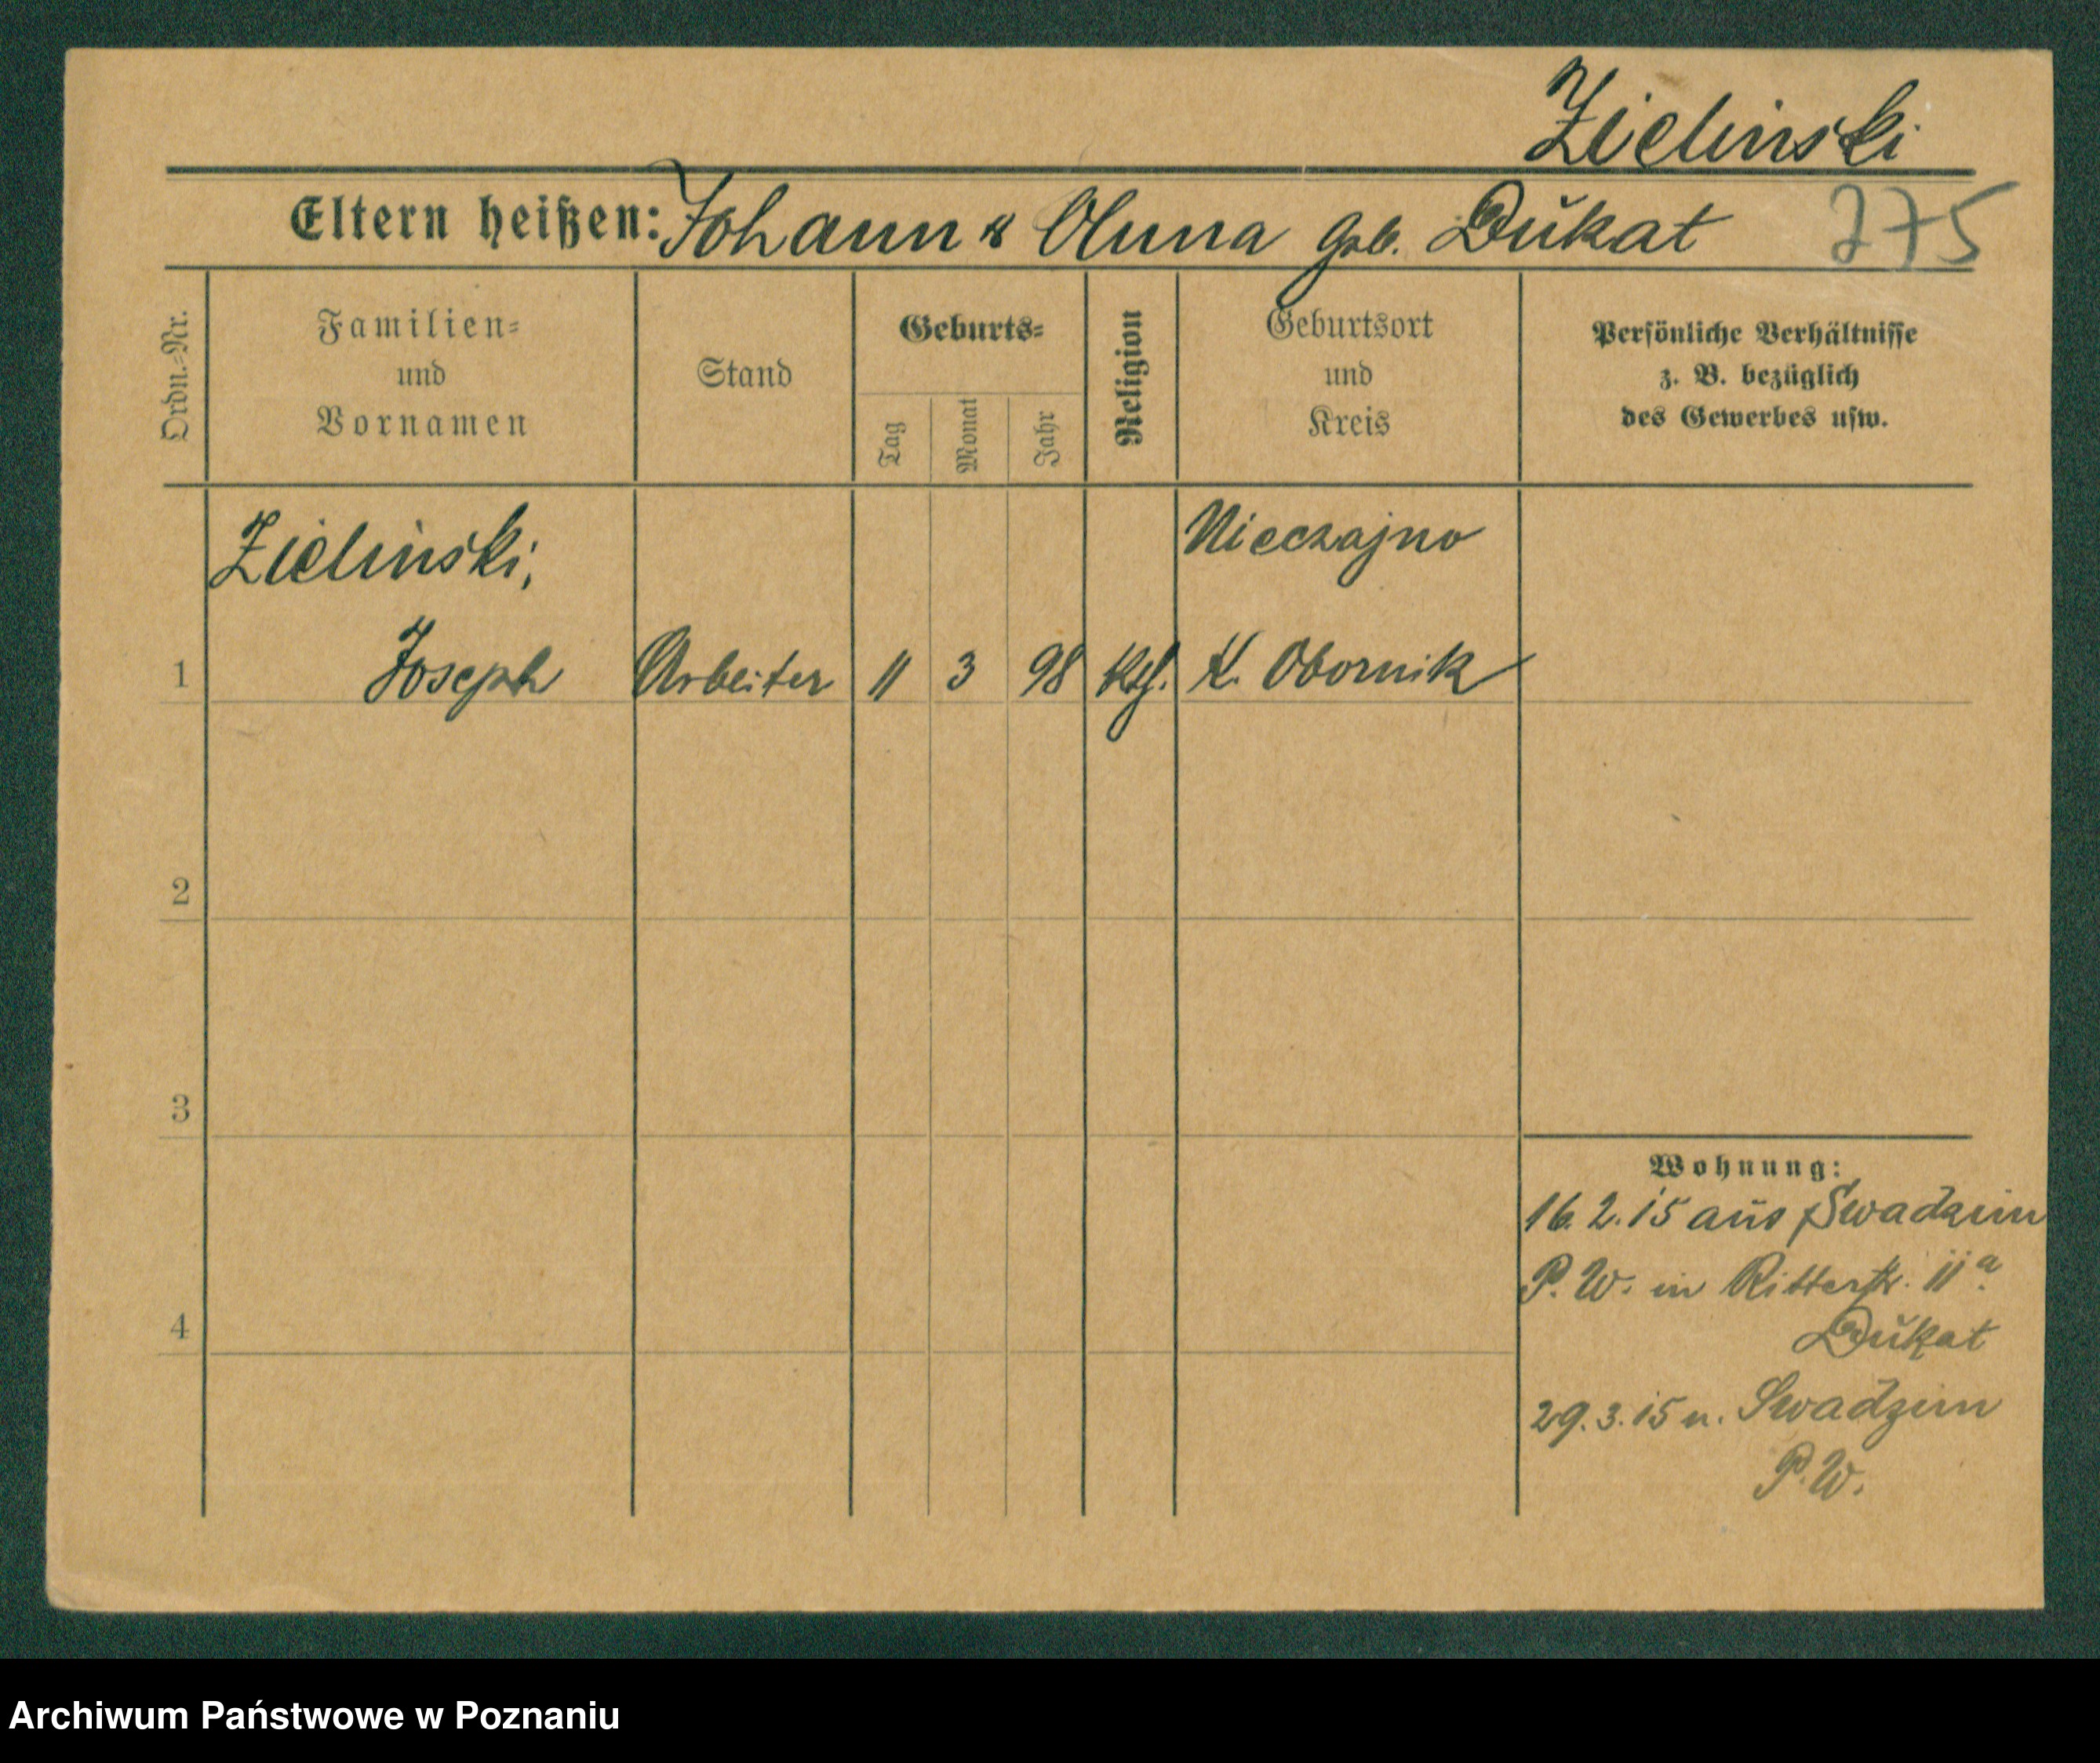 Zielinski
Eltern heißen: Johann & Anna geb. Dukat 275
Ordn.-Nr.
Familien-
und
Vornamen
Stand
Geburts-
Tag
Monat
Jahr
Religion
Geburtsort
und
Kreis
Persönliche Verhältnisse
z. B. bezüglich
des Gewerbes usw.
Zielinski, Nieczajno
1 Joseph Arbeiter 11 3 98 kth. K. Obornik
2
3
Wohnung:
16.2.15 aus Swadzim
P. W. in Ritterstr. 11a.
4 Dukat
29.3.15 n. Swadzim
P. W.
Archiwum Państwowe w Poznaniu